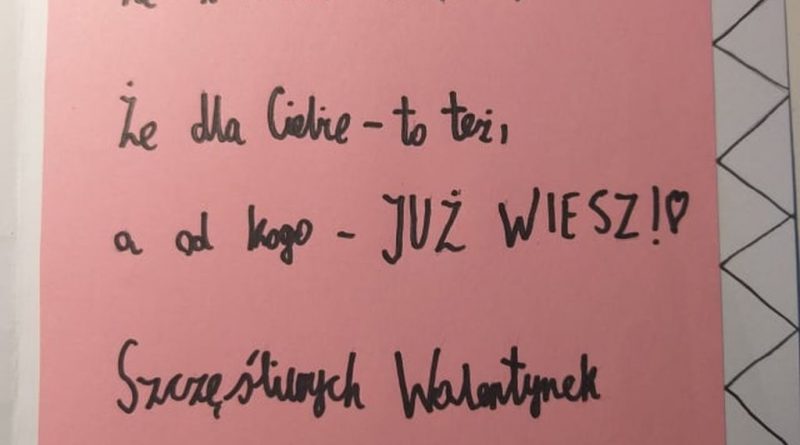 Że dla Ciebie - to też,
a od kogo - JUŻ WIESZ!♡
Szczęśliwych Walentynek